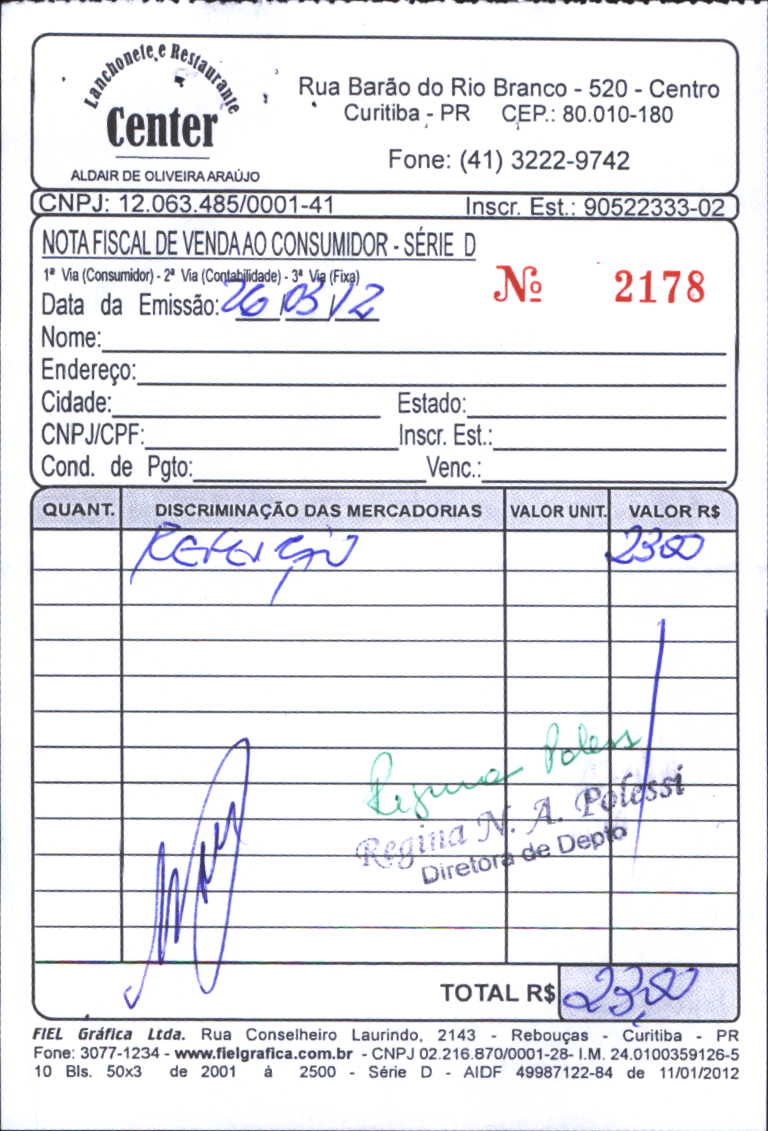 Lanchonete e Restaurante
Center
ALDAIR DE OLIVEIRA ARAÚJO
Rua Barão do Rio Branco - 520 - Centro
Curitiba - PR CEP.: 80.010-180
Fone: (41) 3222-9742
CNPJ: 12.063.485/0001-41 Inscr. Est.: 90522333-02
NOTA FISCAL DE VENDA AO CONSUMIDOR - SÉRIE D
1ª Via (Consumidor) - 2ª Via (Contabilidade) - 3ª Via (Fixa)
Nº 2178
Data da Emissão: 26/03/12
Nome:
Endereço:
Cidade: Estado:
CNPJ/CPF: Inscr. Est.:
Cond. de Pgto: Venc.:
QUANT. DISCRIMINAÇÃO DAS MERCADORIAS VALOR UNIT. VALOR R$
REFEIÇÃO 23,00
Regina Polessi
Regina N. A. Polessi
Diretora de Depto
TOTAL R$ 23,00
FIEL Gráfica Ltda. Rua Conselheiro Laurindo, 2143 - Rebouças - Curitiba - PR
Fone: 3077-1234 - www.fielgrafica.com.br - CNPJ 02.216.870/0001-28- I.M. 24.0100359126-5
10 Bls. 50x3 de 2001 à 2500 - Série D - AIDF 49987122-84 de 11/01/2012